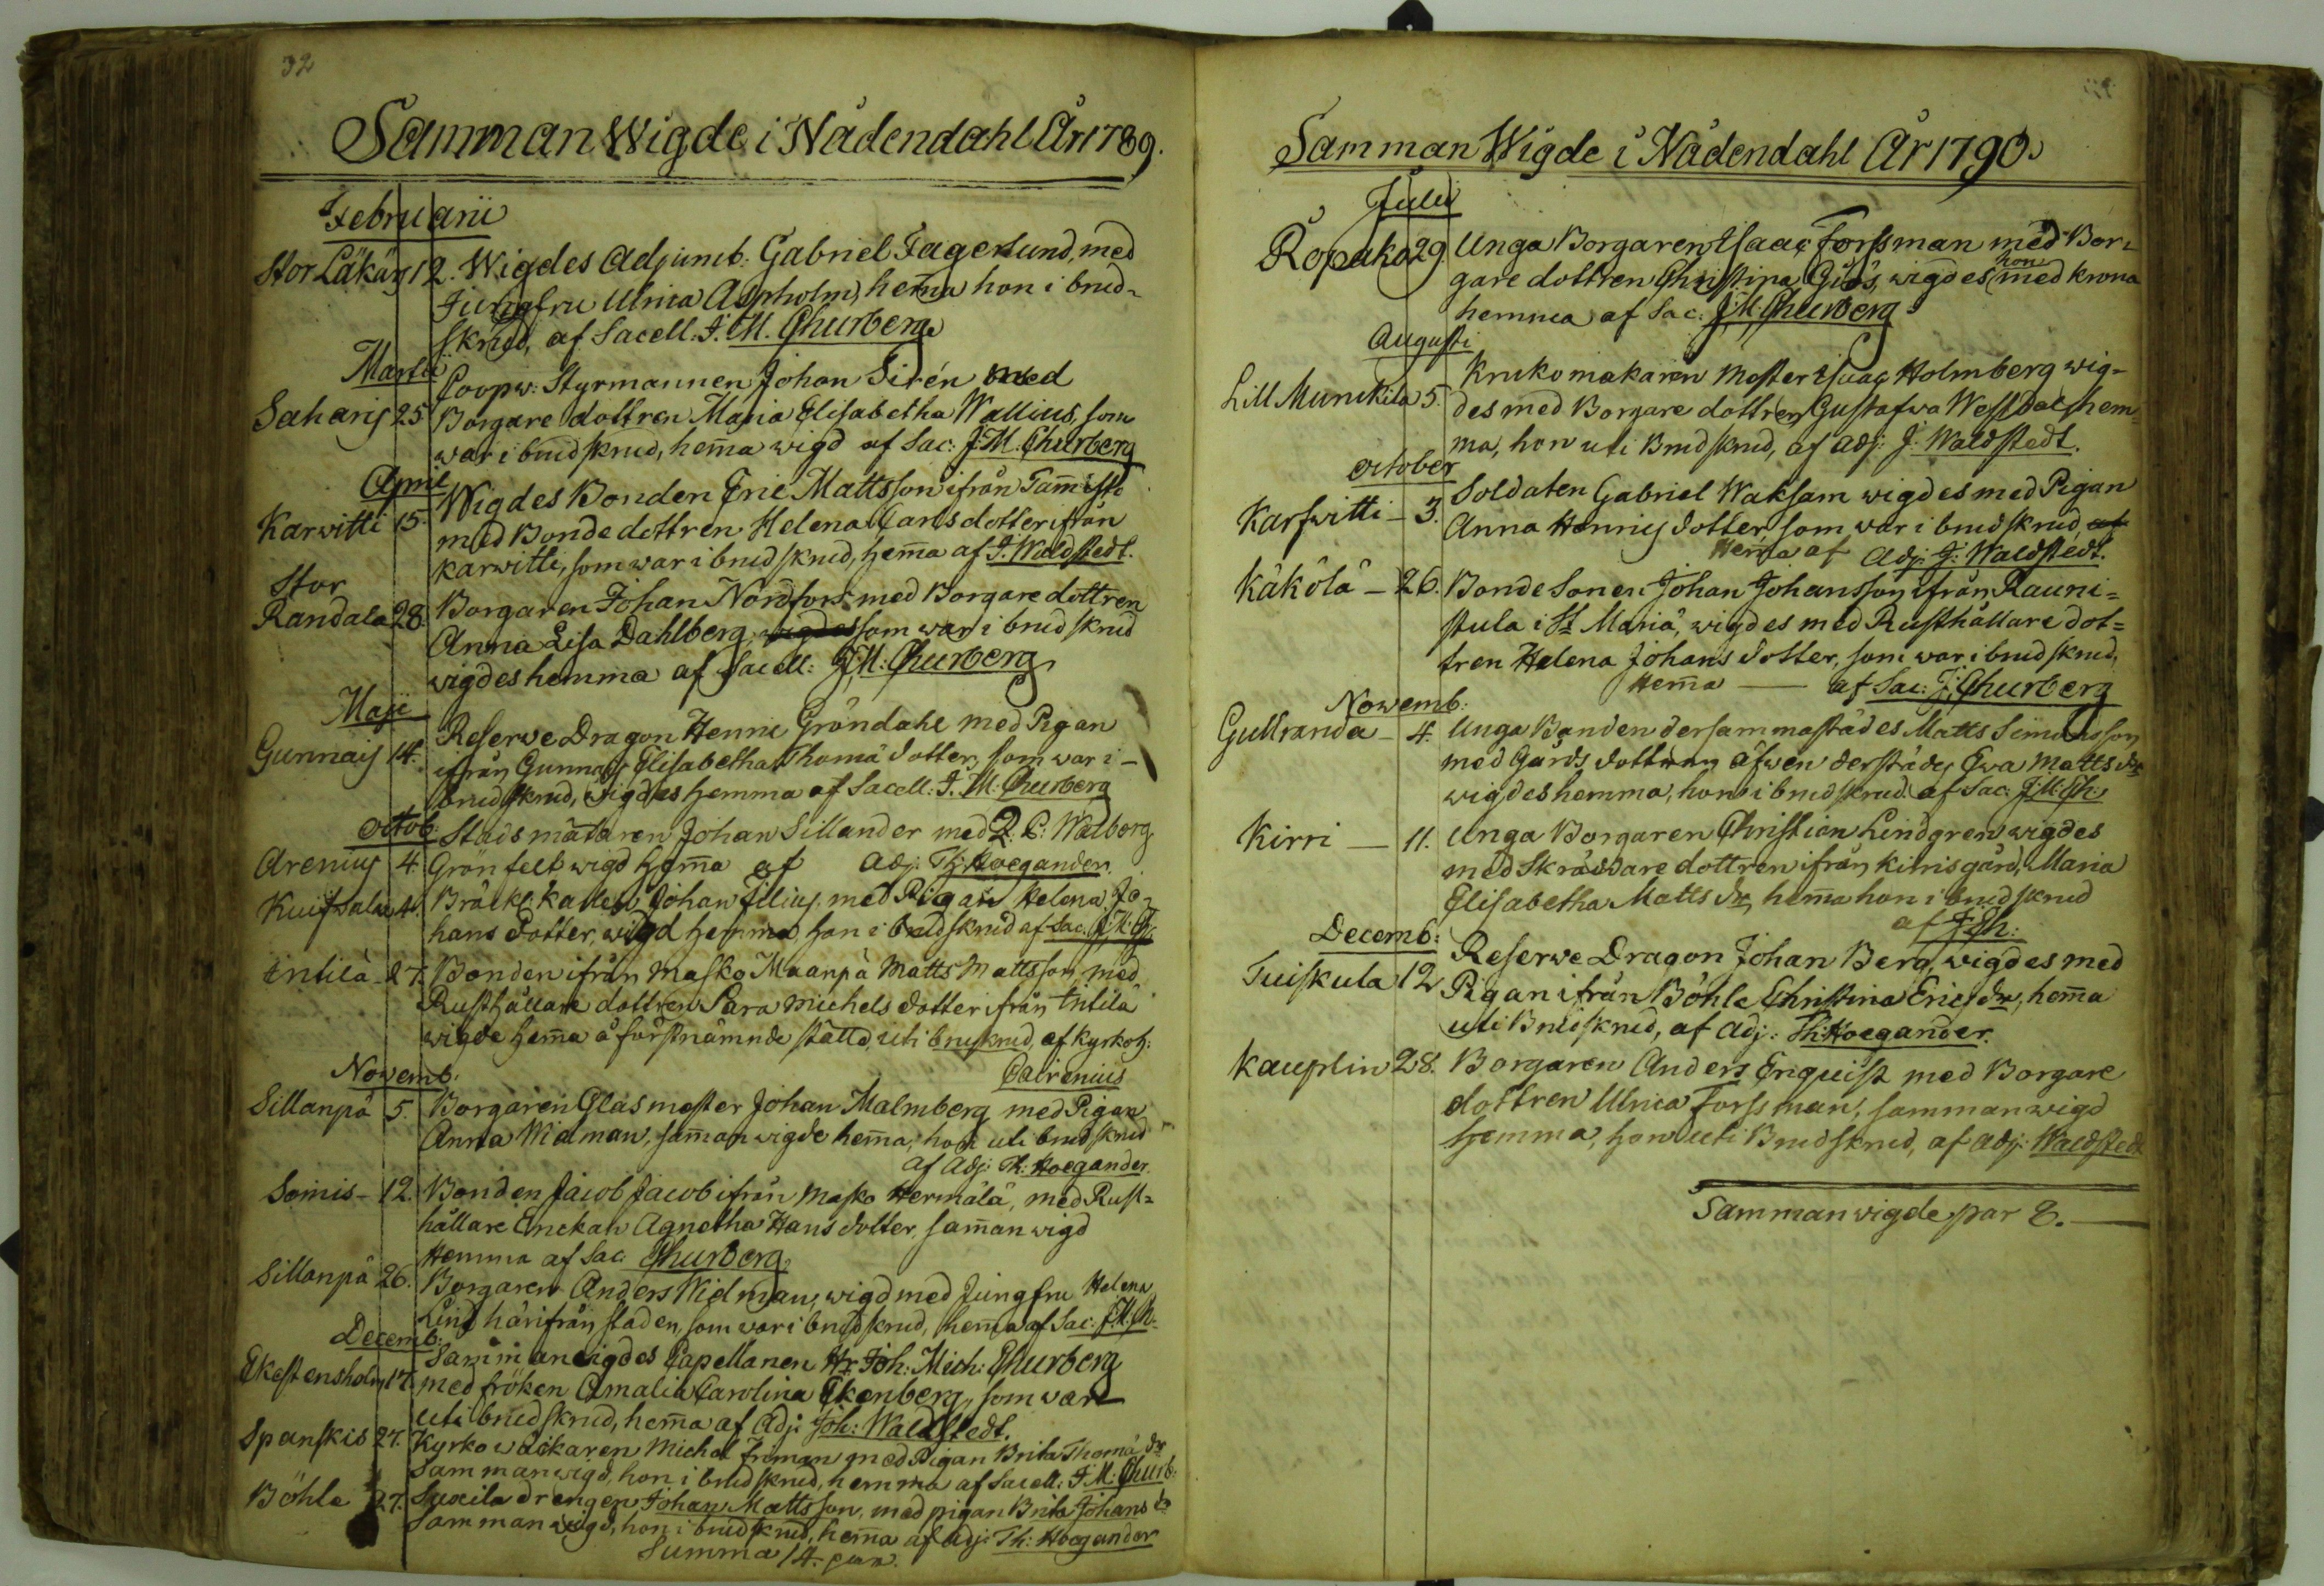 32
Samman Wigde i Nådendahl År 1789.
Februarii
Stor Läkäis 12. Wigdes Adjunct: Gabriel Fagerlund, med
Jungfru Ulrica Aspholm, hem̄a hon i brud-
skrud, af Sacell. J. M. Churberg
Martii
Coopw: Styrmannen Johan Sirén med
Saharis 25 Borgare dottren Maria Elisabetha Wallius, som
war i brudskrud, hem̄a wigd af Sac: J. M. Churberg
April
Wigdes Bonden Eric Mattsson ifrån Tam̄isto
Karwitti 15. med Bonde dottren Helena Carlsdotter ifrån
Karwitti, som war i brudskrud, hem̄a af J. Waldstedt.
Stor
Randala 28. Borgaren Johan Nordfors med Borgare dottren
Anna Lisa Dahlberg, wigdes som war i brudskrud
wigdes hemma af Sacell: J. M: Churberg
Maji
Reserve Dragon Henric Gröndahl med Pigan
Gunnais 14. ifrån Gunnais Elisabetha Thomä dotter, som war i
brudskrud, wigdes hemma af Sacell: J. M. Churberg
Octob:
Stadsmätaren Johan Sillander med D. C: Walborg
Arenius 4. Grönfelt wigd hem̄a af Adj: Th: Hoegander.
Kuifwala 4. Johan Filius med Pigan Helena Jo-
hans dotter, wigd hemma, hon i brudskrud af Sac. J. M. Ch.
Intilä 27. Bonden ifrån Masko Maanpä Matts Mattsson med
Rusthållare dottren Sara Michels dotter ifrån Intilä
wigde hem̄a å förstnämnde ställe, uti bruskrud, af Kyrkoh:
Novemb: Cairenius
Sillanpä 5. Borgaren Glasmäster Johan Malmberg med Pigan
Anna Widman, sam̄anwigde hem̄a, hon uti brudskrud
af Adj: Th: Hoegander.
Somis – 12. Bonden Jacob Jacob ifrån Masko Hermälä, med Rust=
hållare Enckan Agnetha Hans dotter, sam̄anwigd
Hemma af Sac. Churberg,
Sillanpä 26. Borgaren Anders Widman, wigd med Jungfru Helena
Lind härifrån staden, som war i brudskrud, hem̄a af Sac: J. M. Ch.
Decemb:
Sammanwigdes Capellanen Hr Joh: Mich: Churberg
Ekestensholm 17. med fröken Amalia Carolina Ekenberg, som ware
uti brudskrud, hem̄a af Adj: Joh: Waldstedt.
Spanskis 27. Kyrkowäckaren Michel Friman med Pigan Brita Thomä dr
Sammanwigd, hon i brudskrud, hemma af Sacell: J. M. Churb:
Böhle 27. drengen Johan Mattsson, med pigan Brita Johans dr
Sammanwigd, hon i brudskrud, hem̄a af Adj: Th: Hoegander
Summa 14. par.
Samman Wigde i Nådendahl År 1790.
Julii
Ropako 29. Unga Borgaren Isaac Forssman med Bor-
gare dottren Christina Giös, wigdes hon med krona
hemma af Sac: J. M: Churberg
Augusti
Krukomakaren Mäster Isaac Holmberg wig-
Lill Munikila 5. des med Borgare dottren Gustafwa Westdal, hem-
ma, hon uti Brudskrud, af Adj: J. Waldstedt.
October
Soldaten Gabriel Waksam wigdes med Pigan
Karfwitti – 3. Anna Henrics dotter som war i brudskrud af
Hem̄a af Adj: J. Waldstedt.
Käkölä – 26. Bonde Sonen Johan Johansson ifrån Rauni=
stula i St Mariä, wigdes med Rusthållare dot=
tren Helena Johans dotter, som war i brudskrud,
Hem̄a — af Sac: J: Churberg
Nowemb:
Gullranda – 4. Unga Bonden dersammastädes Matts Simonsson
med Gårds dottren äfwen derstädes Ewa Matts dr
wigdes hemma, hon i brudskrud. af Sac. J. M. Ch:
Kirri — 11. Unga Borgaren Christian Lindgren wigdes
med Skräddare dottren ifrån Kirris gård, Maria
Elisabetha Matts dr, hem̄a hon i brudskrud
af J. Ch:
Decemb:
Reserve Dragon Johan Berg, wigdes med
Tuiskula 12 Pigan ifrån Böhle Christina Erics dr, hem̄a
uti Brudskrud, af Adj: Th: Hoegander.
Kauplin 28. Borgaren Anders Enquist med Borgare
dottren Ulrica Forssman, sammanwigd
hemma, hon uti Brudskrud, af Adj: Waldstedt
Sammanwigde par 8. —